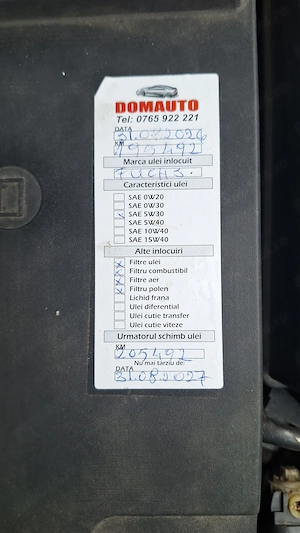 DOMAUTO
Tel: 0765 922 221
DATA
31.08.2026
KM
195492
Marca ulei inlocuit
FUCHS.
Caracteristici ulei
SAE 0W20
SAE 0W30
SAE 5W30
SAE 5W40
SAE 10W40
SAE 15W40
Alte inlocuiri
Filtre ulei
Filtru combustibil
Filtre aer
Filtru polen
Lichid frana
Ulei diferential
Ulei cutie transfer
Ulei cutie viteze
Urmatorul schimb ulei
KM
205492
Nu mai tarziu de:
DATA
31.08.2027